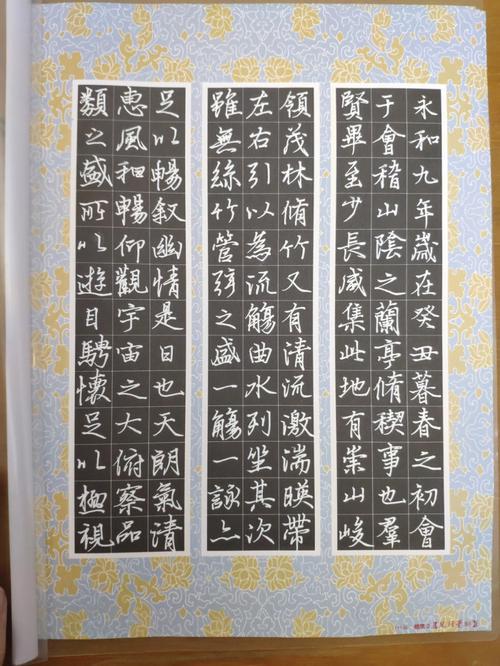 永和九年歲在癸丑暮春之初會
于會稽山陰之蘭亭脩稧事也羣
賢畢至少長咸集此地有崇山峻
領茂林脩竹又有清流激湍暎帶
左右引以為流觴曲水列坐其次
雖無絲竹管弦之盛一觴一詠亦
足以暢叙幽情是日也天朗氣清
惠風和暢仰觀宇宙之大俯察品
類之盛所以遊目騁懷足以極視